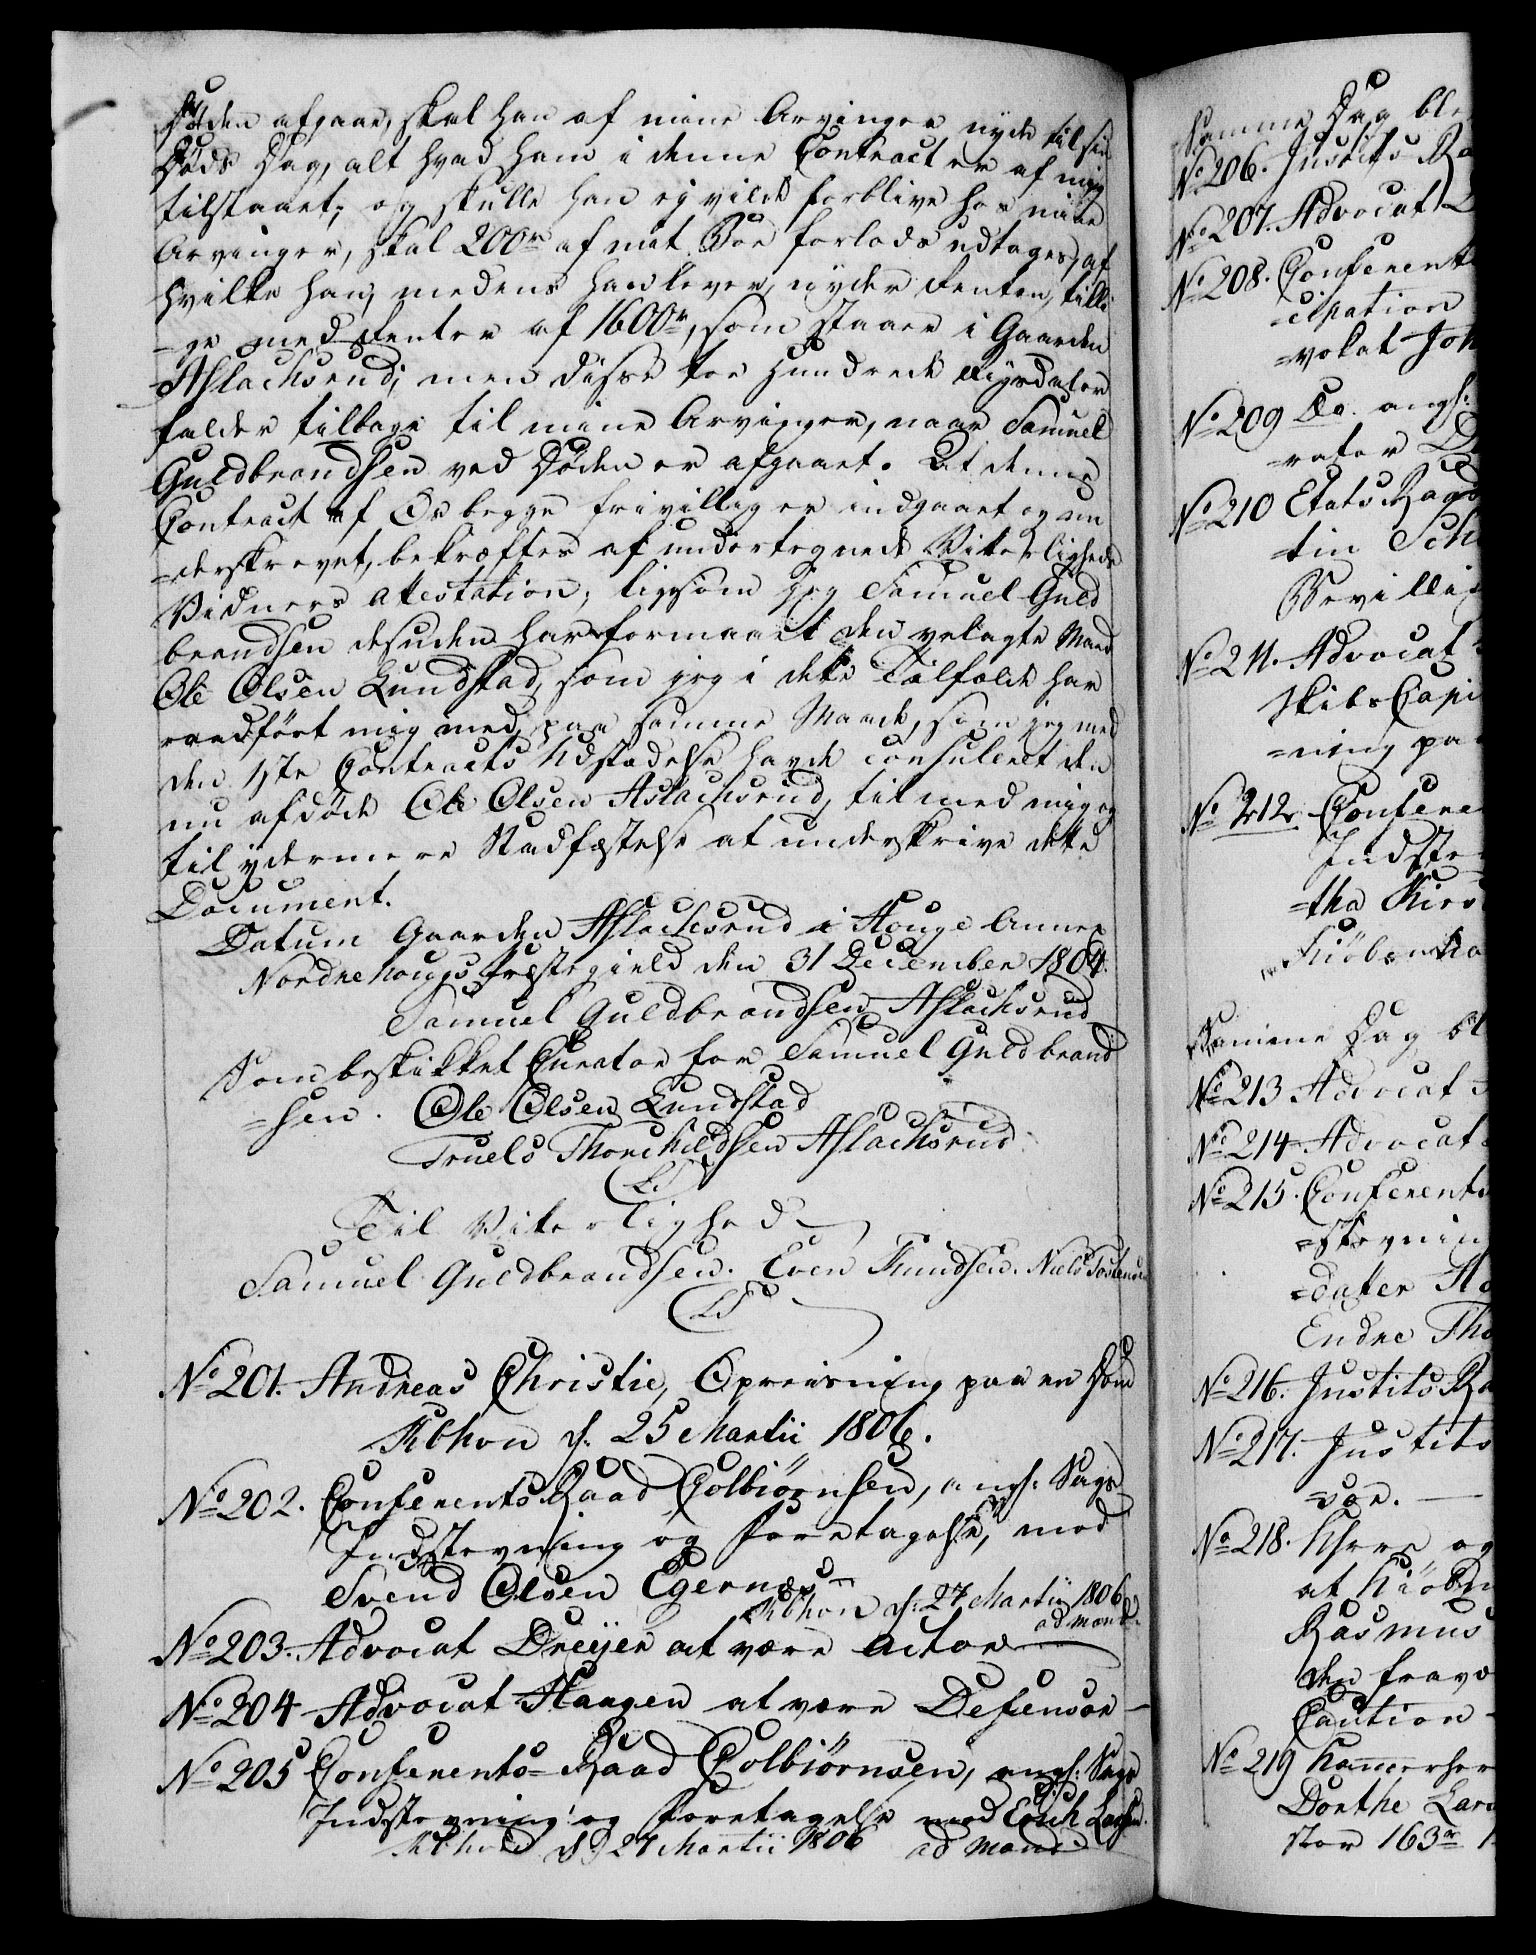 Døden afgaae, skal han af mine Arvinger nyde til sin
Døds Dag, alt hvad ham i denne Contract er af mig
tilstaaet; og skulle han ej vilde forblive hos mine
Arvinger, skal 200rd af mit Boe forlods udtages, af
hvilke han, medens han lever, nyder Renten, tilli-
=ge med Renter af 1600rd, som staaer i Gaarden
Aslachsrud; men disse toe Hundrede Rigsdaler
falder tilbage til mine Arvinger, naar Samuel
Guldbrandsen ved Døden er afgaaet. At denne
Contract af Os begge frivillig er indgaaet og un
=derskrevet, bekræftes af undertegnede Vitterligheds
Vidners Attestation, ligesom jeg Samuel Guld
brandsen desuden har formaaet den velagte Mand
Ole Olsen Lundstad, som jeg i dette Tilfælde har
raadført mig med, paa samme Maade, som jeg med
den 1ste Contracts Udstædelse havde consuleret den
nu afdøde Ole Olsen Aslachsrud, til med mig og
til ydermere Stadfæstelse at underskrive dette
Document.
Datum Gaarden Aslachsrud i Houge Annex
Nordrehougs Præstegield den 31 December 1804.
Samuel Guldbrandsen Aslachsrud
Som beskikket Curator for Samuel Guldbrand
=sen. Ole Olsen Lundstad
Truels Thorchildsen Aslachsrud.
(LS)
Til Vitterlighed
Samuel Guldbrandsen. Even Knudsen. Niels Tostensen
(LS)
No 201. Andreas Christie, Opreisning paa en Dom
Kbhvn d. 25 Martii 1806.
No 202. Conferents Raad Colbiørnsen, angl: Sags
Indstevning og Foretagelse, mod
Svend Olsen Egernæs
Kbhvn d: 27 Martii 1806
ad mand:
No 203. Advocat Dreijer at være Actor
No 204 Advocat Haagen at være Defensor
No 205 Conferents=Raad Colbiørnsen, angl: Sags
Indstevning og Foretagelse mod Erich Larsen.
Kbhvn d 27 Martii 1806 ad mand
Samme Dag ble
No 206. Justits Ra
No 207. Advocat
No 208. Conferents
=cipation
=vokat Joh
No 209 Do. angl:
=rator
No 210 Etats Raad
=tin Sch
Bevilli
No 211. Advocat
Skibs Capi
=ning paa
No 212. Confere
Indste
=tha Kirs
Kiøbenha
Samme Dag bl
No 213 Advocat
No 214 Advocat
No 215. Conferents
=stevnin
=datter
Endre Tho
No 216. Justits Ra
No 217. Justits
=vær.
No 218. Khrr og
at Kiøbm
Rasmus
den fravæ
Caution
No 219 Kammerher
Dorthe Lars
stor 163rd